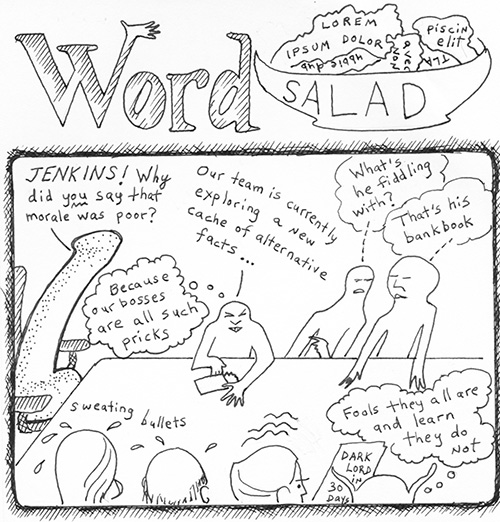 Word
SALAD
LOREM
IPSUM DOLOR
PISCIN
elit
TLA
JENKINS! Why
did you say that
morale was poor?
Because
our bosses
are all such
pricks
Our team is currently
exploring a new
cache of alternative
facts...
What's
he fiddling
with?
That's his
bankbook
sweating bullets
Fools they all are
and learn
they do
Not
DARK
LORD
IN
30
DAYS